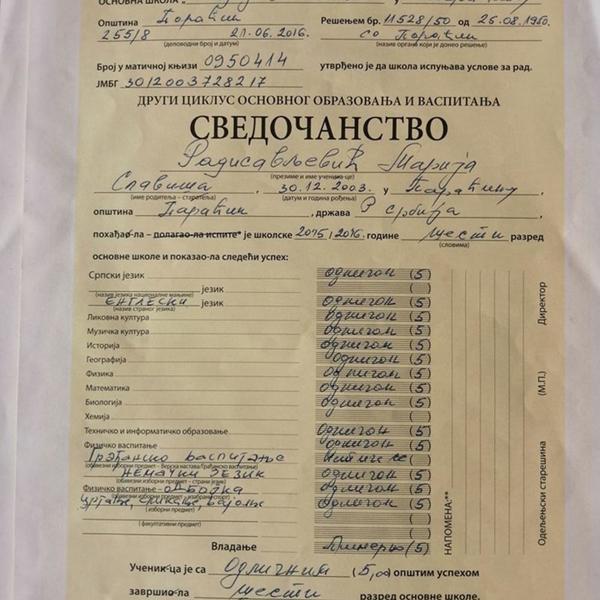 ОСНОВНА ШКОЛА
Општина Параћин Решењем бр. 11528/50 од 25.08.1950.
255/8 21.06.2016. СО Параћин
(деловодни број и датум) (назив органа који је донео решење)
Број у матичној књизи 0950414 утврђено је да школа испуњава услове за рад.
ЈМБГ 3012003728217
ДРУГИ ЦИКЛУС ОСНОВНОГ ОБРАЗОВАЊА И ВАСПИТАЊА
СВЕДОЧАНСТВО
Радисављевић Марија
(презиме и име ученика-це)
Славиша, 30.12.2003. у Параћину,
(име родитеља – старатеља) (датум и година рођења)
општина Параћин, држава Р Србија,
похађао-ла – полагао-ла испите* је школске 2015/2016. године шести разред
(словима)
основне школе и показао-ла следећи успех:
Српски језик одличан (5)
језик ( )
(назив језика националне мањине)
ЕНГЛЕСКИ језик одличан (5)
(назив страног језика)
Ликовна култура одличан (5)
Музичка култура одличан (5)
Историја одличан (5)
Географија одличан (5)
Физика одличан (5)
Математика одличан (5)
Биологија одличан (5)
Хемија ( )
Техничко и информатичко образовање одличан (5)
Физичко васпитање одличан (5)
Грађанско васпитање Истиче се ( )
(обавезни изборни предмет – Верска настава/Грађанско васпитање)
НЕМАЧКИ ЈЕЗИК одличан (5)
(обавезни изборни предмет – страни језик)
Физичко васпитање – ОДБОЈКА одличан (5)
Цртање, сликање, вајање одличан (5)
(изборни предмет)
( )
(факултативни предмет)
Владање Примерно (5)
НАПОМЕНА:**
Одељењски старешина
(М.П.)
Директор
Ученик-ца је са одличним (5,00) општим успехом
завршио-ла шести разред основне школе.